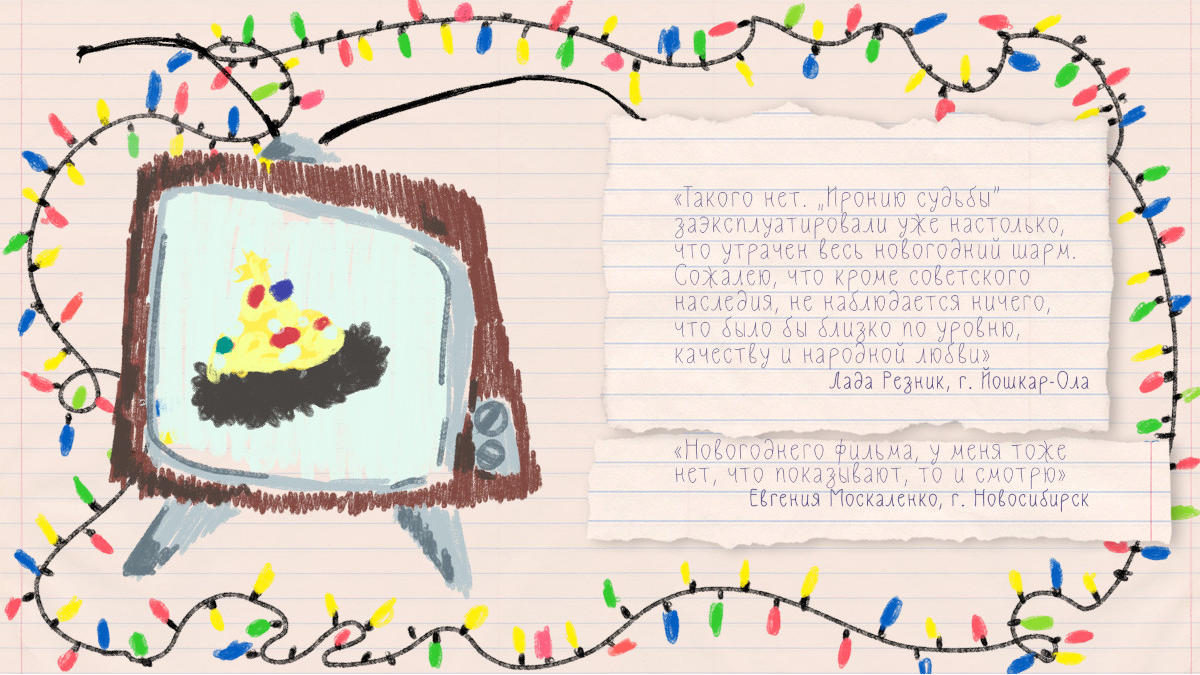 «Такого нет. „Иронию судьбы"
заэксплуатировали уже настолько,
что утрачен весь новогодний шарм.
Сожалею, что кроме советского
наследия, не наблюдается ничего,
что было бы близко по уровню,
качеству и народной любви»
Лада Резник, г. Йошкар-Ола
«Новогоднего фильма, у меня тоже
нет, что показывают, то и смотрю»
Евгения Москаленко, г. Новосибирск